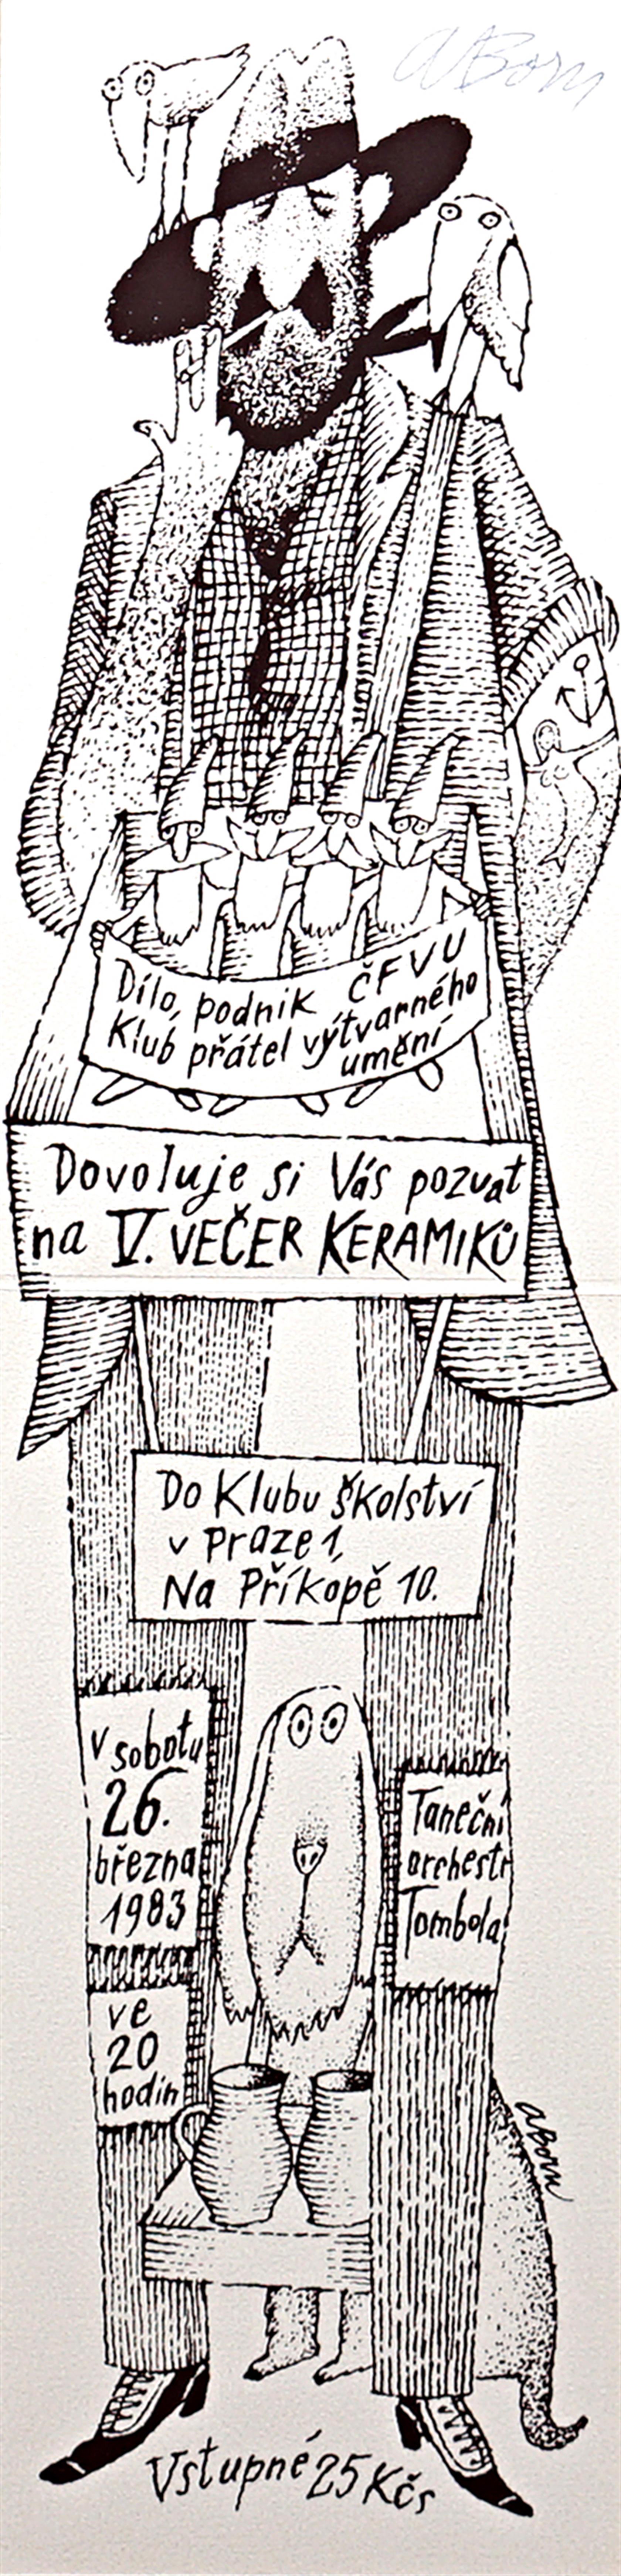 ABorn
Dílo, podnik ČFVU
Klub přátel výtvarného
umění
Dovoluje si Vás pozvat
na V. VEČER KERAMIKŮ
Do Klubu školství
v Praze 1,
Na Příkopě 10.
V sobotu
26.
března
1983
ve
20
hodin
Taneční
orchestr
Tombola
ABorn
Vstupné 25 Kčs